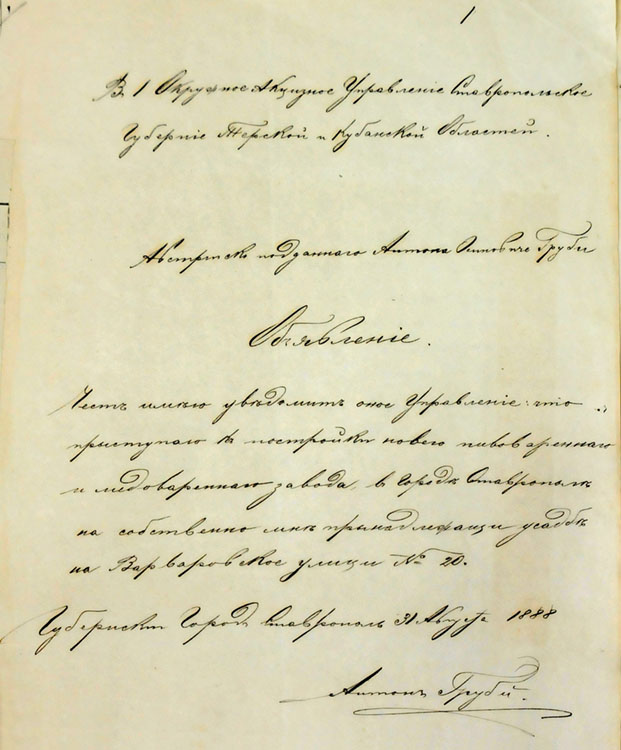 1
В 1 Окружное Акцизное Управленіе Ставропольское
Губерніе Терской и Кубанской Областей.
Австриско подданнаго Антона Осиповиче Груби
Объявленіе.
Честь имѣю увѣдомитъ оное Управленіе: что
прыступаю къ постройки новего пивовареннаго
и медовареннаго завода, в Городѣ Ставрополѣ
на собственно мнѣ прынадлежащи усадбѣ
на Варваровское улици № 20.
Губернскт Город Ставрополь 31 Августа 1888
Антонъ Груби.